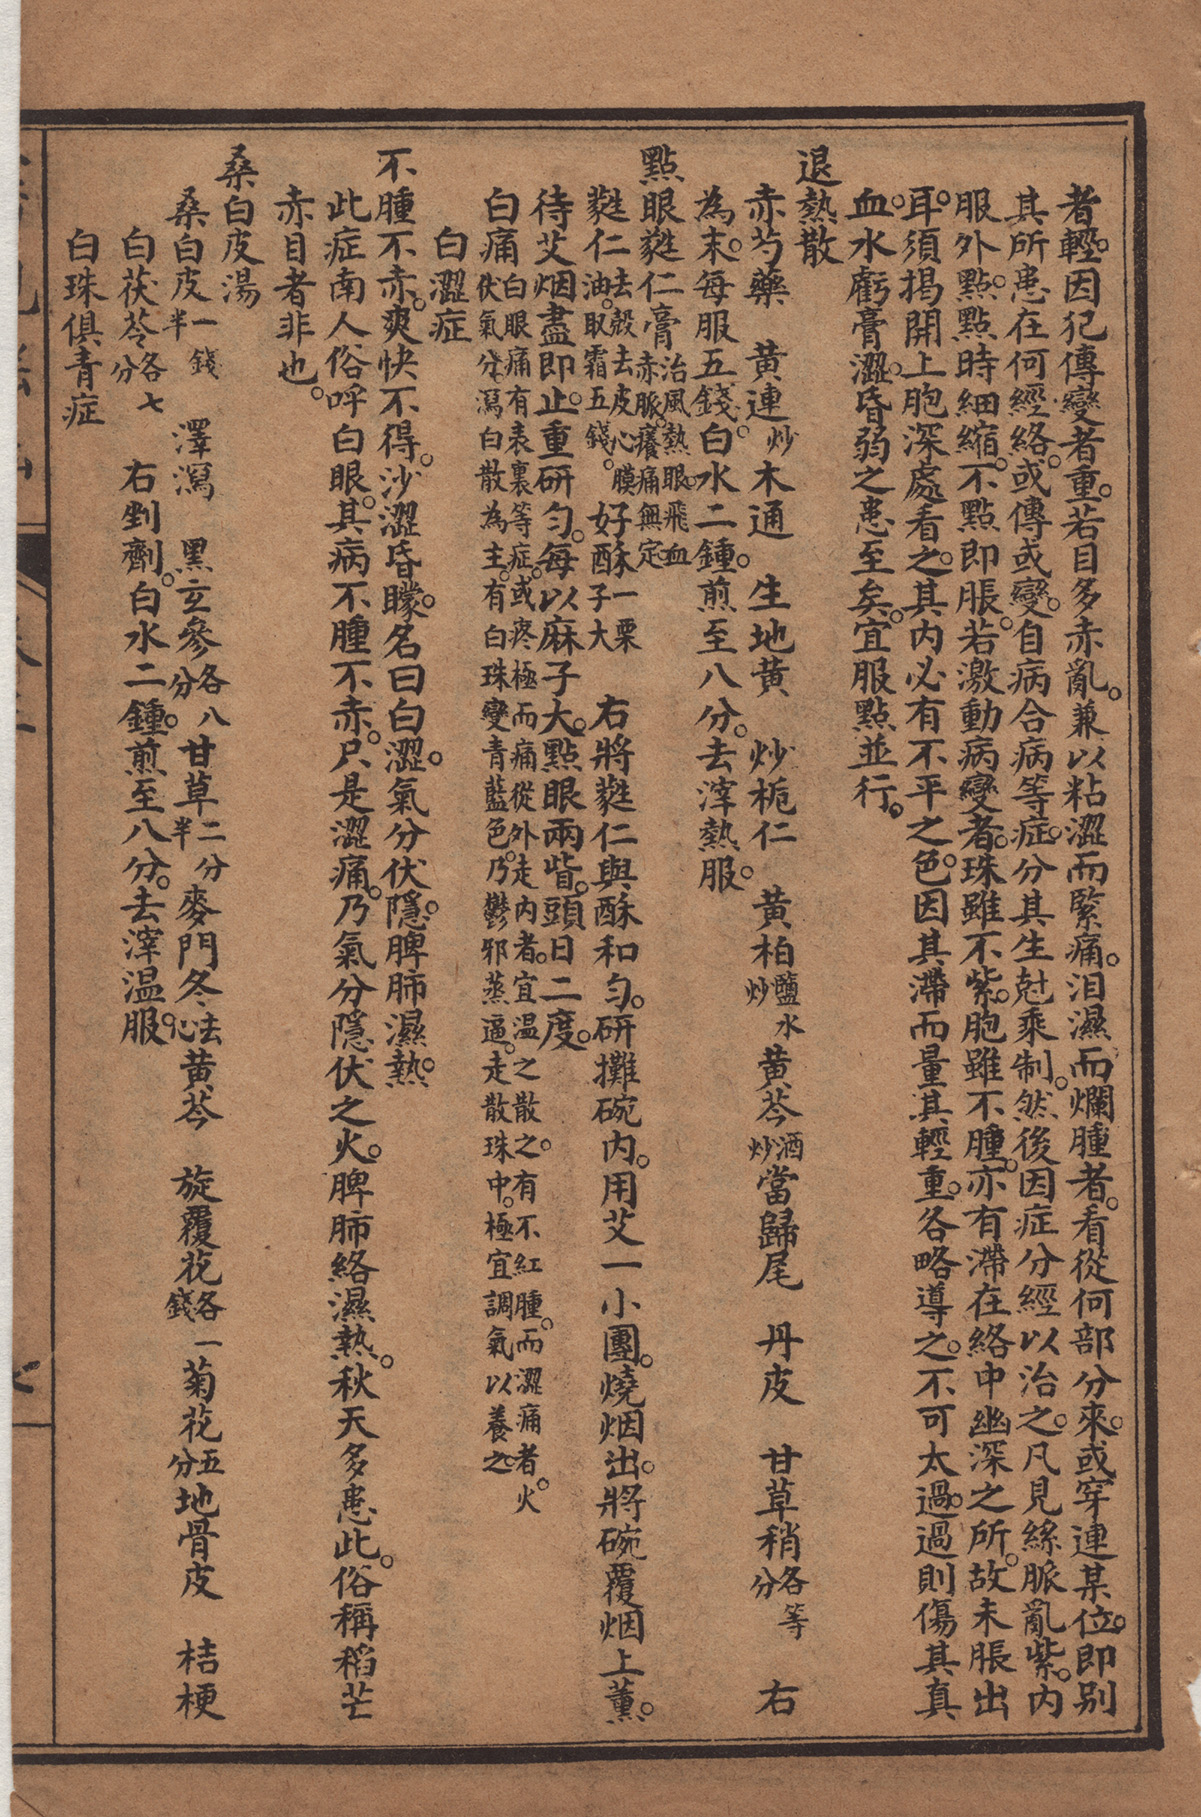 者輕。因犯傳變者重。若目多赤亂。兼以粘澀而緊痛。泪濕而爛腫者。看從何部分來。或穿連某位。即別
其所患在何經絡。或傳或變。自病合病等症。分其生尅乘制。然後因症分經以治之。凡見絲脈亂紫。內
服外點。點時細縮。不點即脹。若激動病變者。珠雖不紫。胞雖不腫。亦有滯在絡中幽深之所。故未脹出
耳。須揭開上胞深處看之。其內必有不平之色。因其滯而量其輕重。各略導之。不可太過。過則傷其真
血。水虧膏澀。昏弱之患至矣。宜服點並行。
退熱散
赤芍藥　黃連炒木通　生地黃　炒梔仁　黃柏鹽水炒黃芩酒炒當歸尾　丹皮　甘草稍各等分　右
為末。每服五錢。白水二鍾。煎至八分。去滓熱服。
點眼蕤仁膏治風熱眼。飛血赤脈。癢痛無定
蕤仁去殼去皮心膜油。取霜五錢。好酥一栗子大　右將蕤仁與酥和勻。研攤碗內。用艾一小團。燒烟出。將碗覆烟上薰。
待艾烟盡即止。重研勻。每以麻子大。點眼兩眥。頭日二度。
白痛白眼痛有表裏等症。或疼極而痛從外走內者。宜温之散之。有不紅腫。而澀痛者。火伏氣分。瀉白散為主。有白珠變青藍色。乃鬱邪蒸逼。走散珠中。極宜調氣以養之。
白澀症
不腫不赤。爽快不得。沙澀昏矇。名曰白澀。氣分伏隱。脾肺濕熱。
此症南人俗呼白眼。其病不腫不赤。只是澀痛。乃氣分隱伏之火。脾肺絡濕熱。秋天多患此。俗稱稻芒
赤目者非也。
桑白皮湯
桑白皮一錢半　澤瀉　黑玄參各八分甘草二分半麥門冬去心黃芩　旋覆花各一錢菊花五分地骨皮　桔梗
白茯苓各七分　右剉劑。白水二鍾。煎至八分。去滓温服。
白珠俱青症